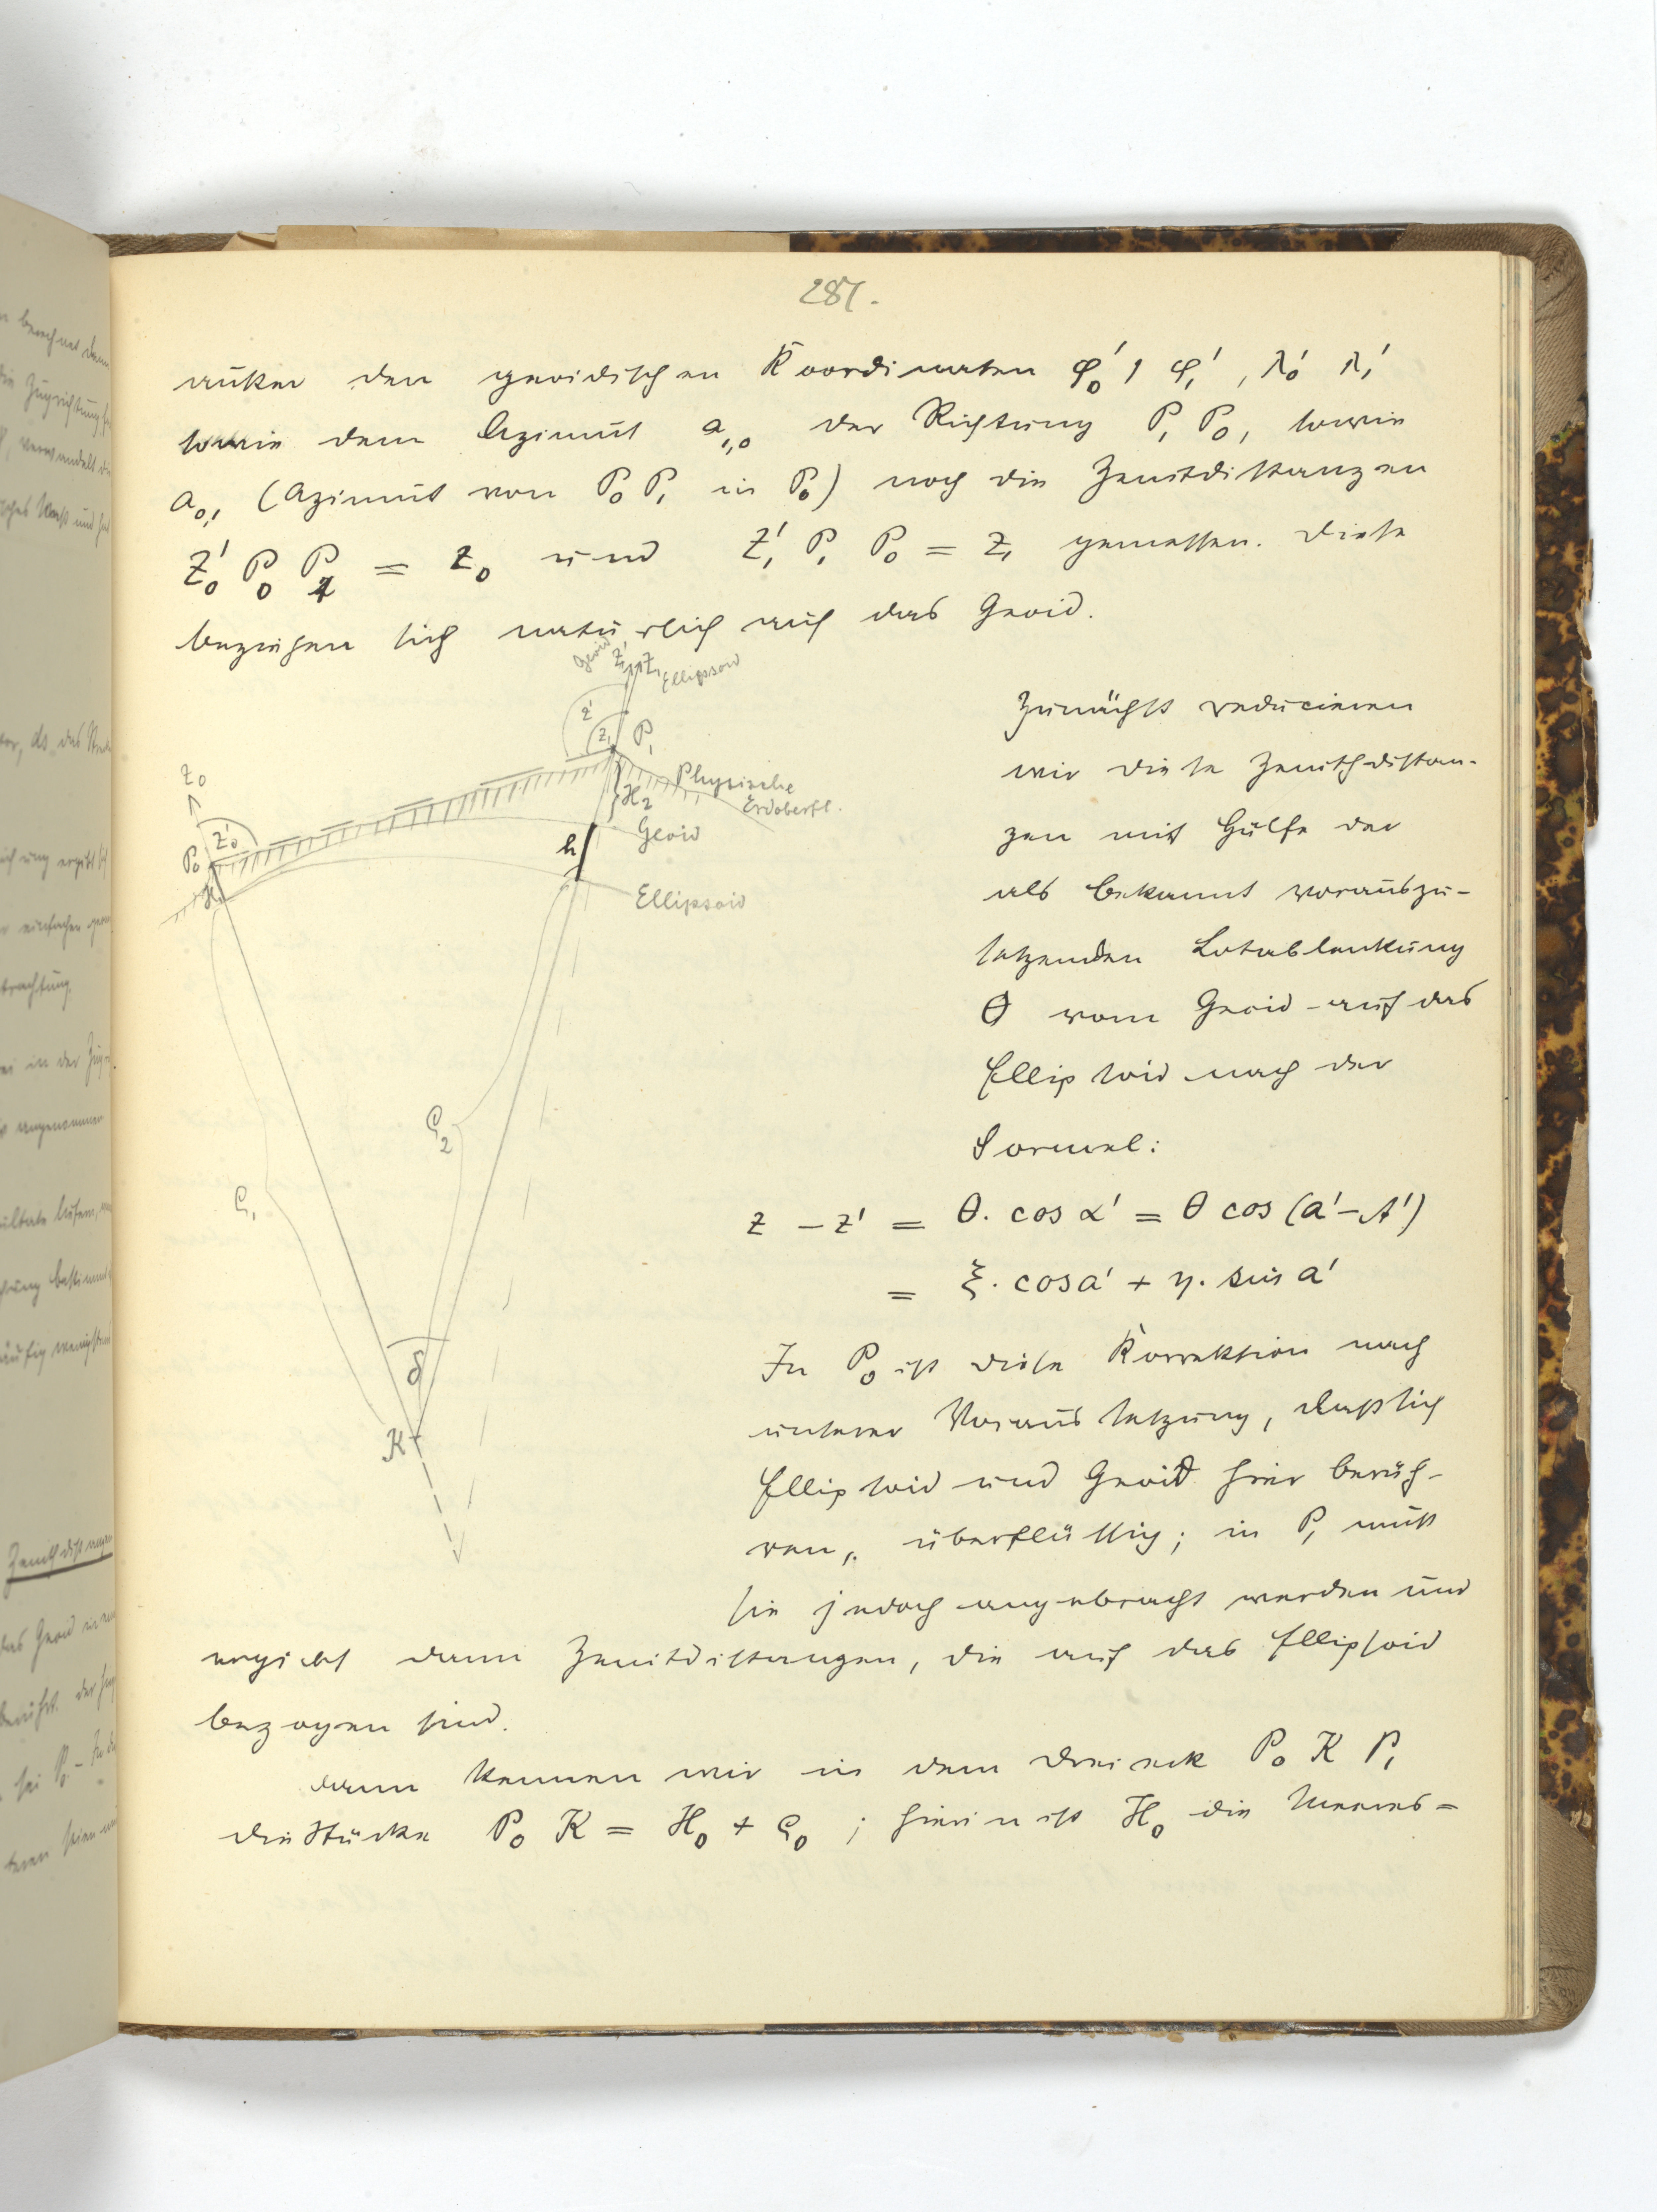 287.
außer den geoidischen Koordinaten φ₀′, φ₁′, λ₀′ λ₁′
sowie dem Azimut a₁,₀ der Richtung P₁ P₀, sowie
a₀,₁ (Azimut von P₀ P₁ in P₀) noch die Zenitdistanzen
Z₀′ P₀ P₁ = z₀ und Z₁′ P₁ P₀ = z₁ gemessen. Diese
beziehen sich natürlich auf das Geoid.
Geoid Z₁′ Z₁ Ellipsoid
z′ z₁ P₁
Z₀
Physische
Erdoberfl.
H₂
P₀ z₀′
Geoid
h
H₁
Ellipsoid
ϱ₂
ϱ₁
δ
K
Zunächst reducieren
wir diese Zenithdistan-
zen mit Hülfe der
als bekannt vorauszu-
setzenden Lotablenkung
Θ vom Geoid auf das
Ellipsoid nach der
Formel:
z – z′ = Θ. cos α′ = Θ cos (a′ – A′)
= ξ. cos a′ + η. sin a′
In P₀ ist diese Korrektion nach
unserer Voraussetzung, daß sich
Ellipsoid und Geoid hier berüh-
ren, überflüssig; in P₁ muß
sie jedoch angebracht werden und
ergiebt dann Zenitdistanzen, die auf das Ellipsoid
bezogen sind.
Dann kennen wir in dem Dreieck P₀ K P₁
die Stücke P₀ K = H₀ + ϱ₀ ; hierin ist H₀ die Meeres=